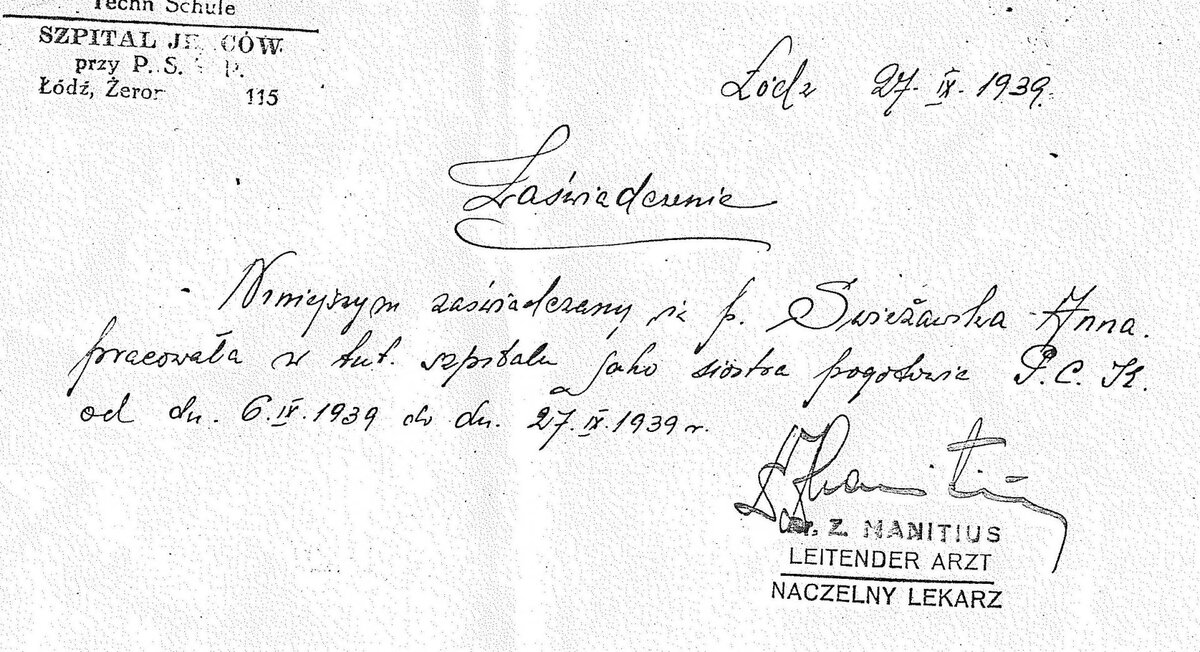 Techn Schule
SZPITAL JE CÓW
przy P. S. P.
Łódź, Żeror 115
Łódz 27. IX. 1939.
Zaświadczenie
Niniejszym zaświadczamy że p. Swieżawska Anna.
pracowała w tut. szpitalu jako siostra pogotowia P. C. K.
od dn. 6. IX. 1939 do dn. 27. IX. 1939 r.
Dr. Z. MANITIUS
LEITENDER ARZT
NACZELNY LEKARZ